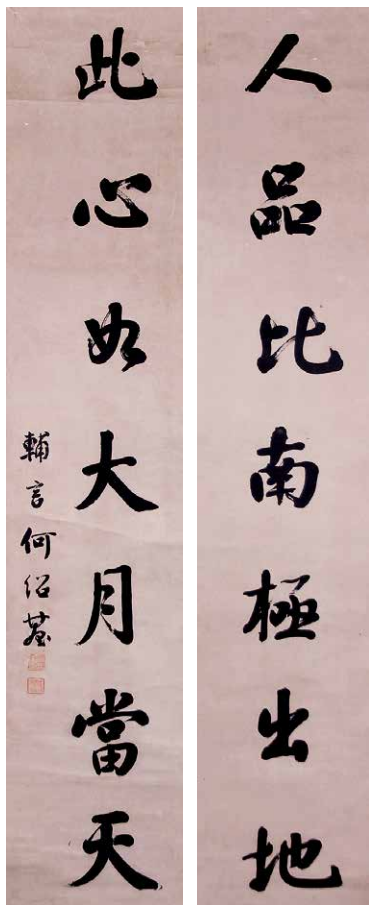 人品比南極出地
此心如大月當天
輔言何紹